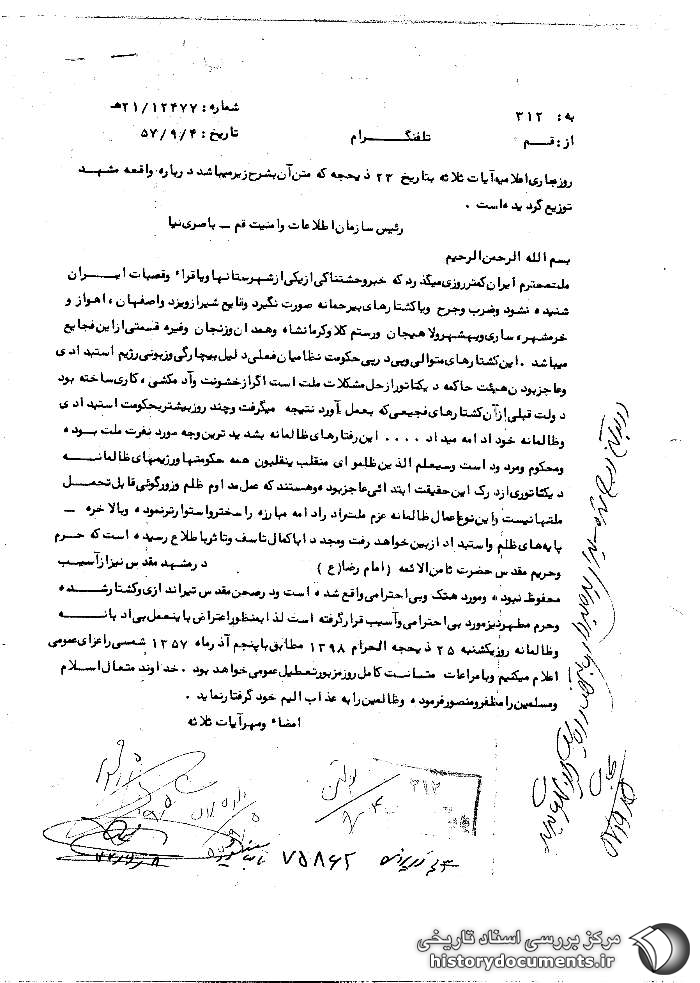 به: ۳۱۲
شماره: ۲۱/۱۲۴۷۷هـ
از: قم
تلفنگرام
تاریخ: ۵۷/۹/۴
روزجاری اعلامیه آیات ثلاثه بتاریخ ۲۳ ذیحجه که متن آن بشرح زیرمیباشد درباره واقعه مشهد
توزیع گردیده است .
رئیس سازمان اطلاعات وامنیت قم ـ باصری نیا
بسم الله الرحمن الرحیم
ملت محترم ایران کمتر روزی میگذرد که خبر وحشتناکی از یکی از شهرستانها ویا قراء وقصبات ایران
شنیده نشود وضرب وجرح ویا کشتارهای بیرحمانه صورت نگیرد وقایع شیراز ویزد واصفهان ، اهواز و
خرمشهر ، ساری وبهشهر ولاهیجان ورستم کلا وکرمانشاه وهمدان وزنجان وغیره قسمتی از این فجایع
میباشد . این کشتارهای متوالی وپی درپی حکومت نظامیان فعلی دلیل بیچارگی وزبونی رژیم استبدادی
وعاجزبودن هیئت حاکمه دیکتاتور از حل مشکلات ملت است اگر از خشونت وآدمکشی ، کاری ساخته بود
دولت قبلی از آن کشتارهای فجیعی که بعمل آورد نتیجه میگرفت وچند روز بیشتر بحکومت استبدادی
وظالمانه خود ادامه میداد .... این رفتارهای ظالمانه بشدیدترین وجه مورد نفرت ملت بوده
ومحکوم ومردود است وسیعلم الذین ظلموای منقلب ینقلبون همه حکومتها ورژیمهای ظالمانه
دیکتاتوری ازدرک این حقیقت ابتدائی عاجزبوده وهستند که عمل مداوم ظلم وزورگوئی قابل تحمل
ملتهانیست واین نوع اعمال ظالمانه عزم ملت رادر ادامه مبارزه راسختر واستوارترنموده وبالاخره ـ
پایه های ظلم واستبداد ازبین خواهد رفت ومجددا باکمال تاسف وتاثر باطلاع رسیده است که حرم
وحریم مقدس حضرت ثامن الائمه (امام رضا(ع) درمشهد مقدس نیزازآسیب
محفوظ نبوده ومورد هتک وبی احترامی واقع شده است ودرصحن مقدس تیراندازی وکشتارشده
وحرم مطهرنیزمورد بی احترامی وآسیب قرارگرفته است لذا بمنظوراعتراض باینعمل بی ادبانه
وظالمانه روزیکشنبه ۲۵ ذیحجه الحرام ۱۳۹۸ مطابق باپنجم آذرماه ۱۳۵۷ شمسی راعزای عمومی
اعلام میکنیم وبامراعات متانت کامل روزمزبورتعطیل عمومی خواهد بود . خداوند متعال اسلام
ومسلمین رامظفرومنصورفرموده وظالمین رابه عذاب الیم خود گرفتارنماید .
امضاء ومهرآیات ثلاثه
۳۱۲
۷۵۸۶۲
مرکز بررسی اسناد تاریخی
historydocuments.ir